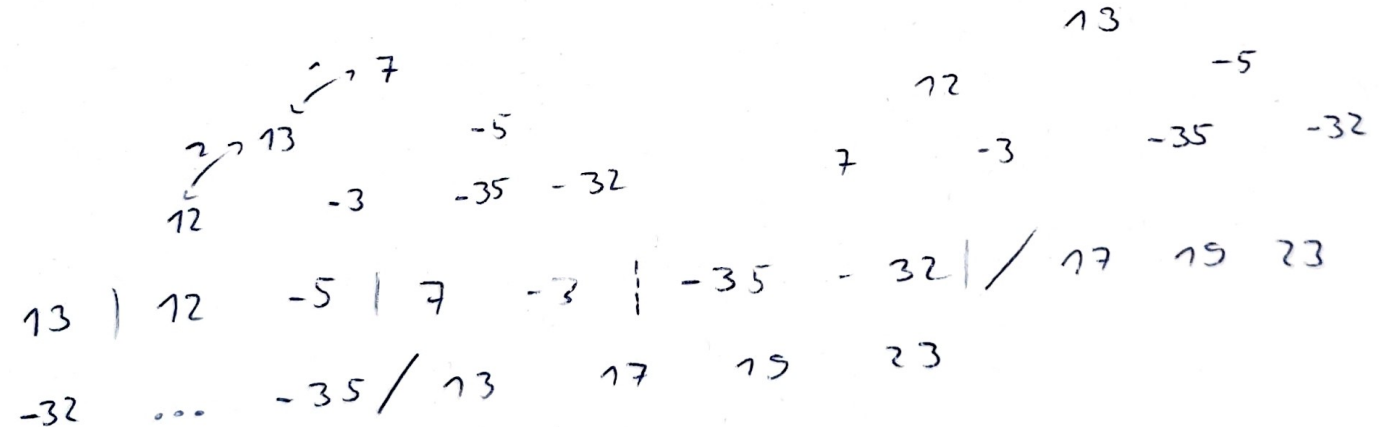 13
7
12 -5
13 -5 7 -3 -35 -32
12 -3 -35 -32
13 | 12 -5 | 7 -3 ¦ -35 -32 | / 17 19 23
-32 ... -35 / 13 17 19 23